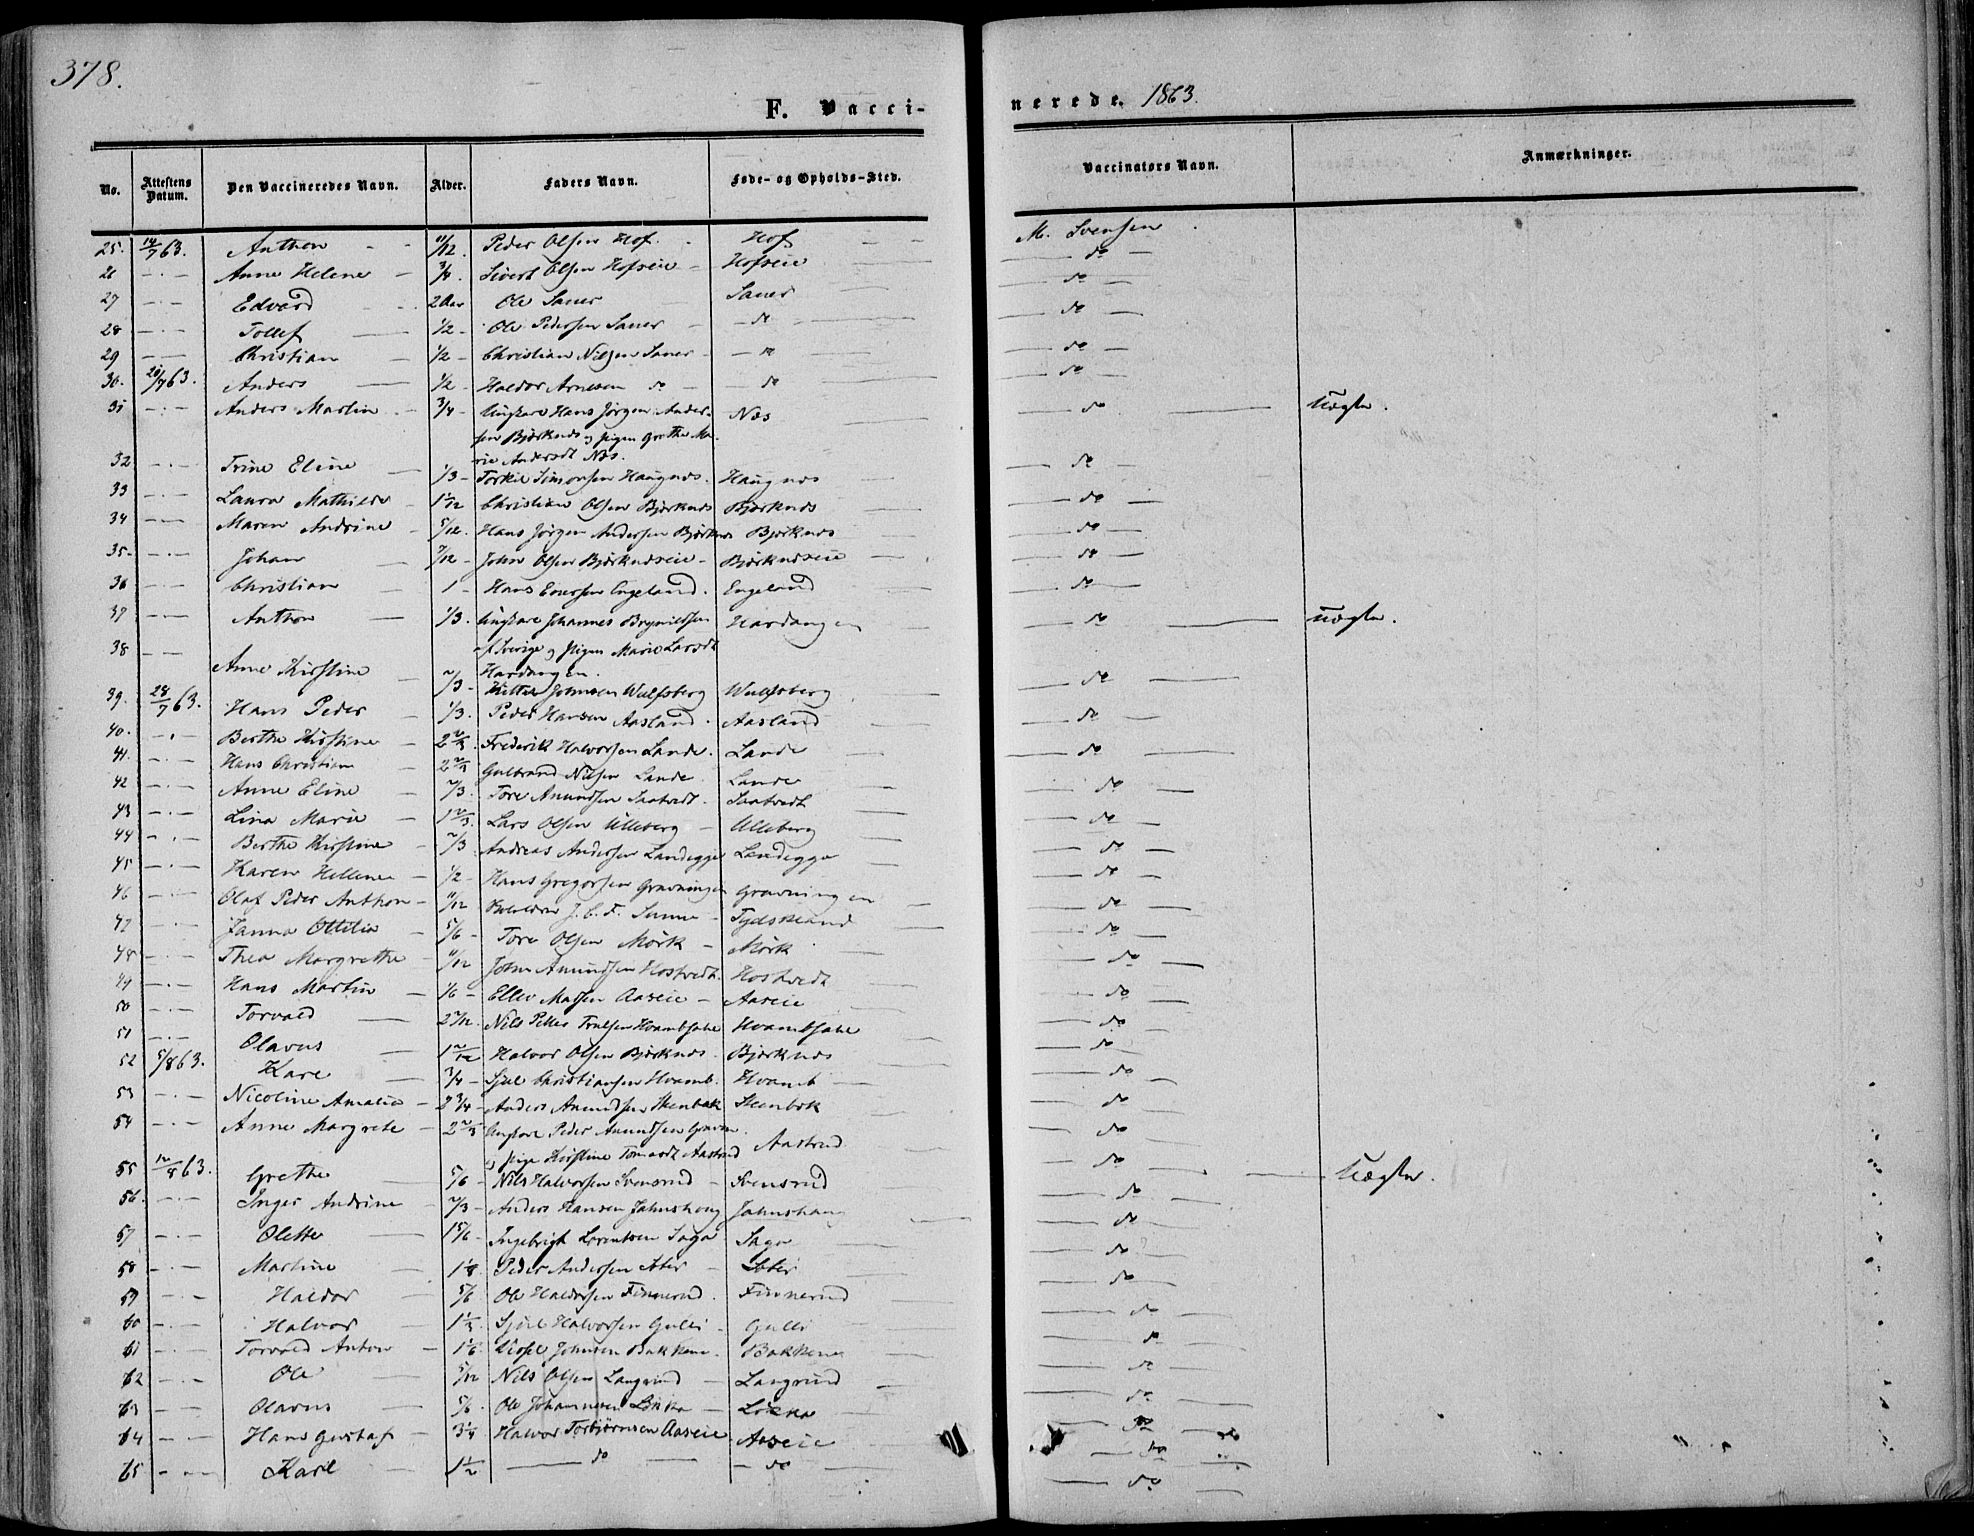 378.
F. Vaccinerede. 1863.
No. Attestens Datum. Den Vaccineredes Navn. Alder. Faders Navn. Føde- og Opholds-Sted. Vaccinators Navn. Anmærkninger.
25. 14/7 63. Anthon 11/12. Peder Olsen Hof. Hof M. Svensen
26 -"- Anne Helene 3/4. Sivert Olsen Hofseie Hofseie do
27 -"- Edvard 2 Aar Ole Saner Saner do
28 -"- Tollef 1/2 Ole Pedersen Saner do do
29 -"- Christian 1/2 Christian Nilsen Saner do do
30. 20/7 63. Anders 1/2 Haldor Arnesen do do do
31 -"- Anders Martin 3/4 Ungkare Hans Jørgen Andersen Bjørknes og Pigen Grethe Marie Andersdt Næs. Næs do Uægte.
32 -"- Trine Eline 1/3 Torkil Simonsen Haugnæs. Haugnæs do
33 -"- Laura Mathilde 1 1/12 Christian Olsen Bjørknes Bjørknes do
34 -"- Maren Andrine 5/12. Hans Jørgen Andersen Bjørknes Bjørknes do
35 -"- Johan 7/12 John Olsen Bjørknæseie Bjørknæseie do
36 -"- Christian 1 Hans Enersen Engeland. Engeland do
37 -"- Anthon 1/3. Ungkare Johannes Brynildsen f Sverige og Pigen Marie Larsdt Hardangen. Hardangen do uægte.
38 -"- Anne Kirstine 2/3 Kittel Johnsen Wulfsberg Wulfsberg do
39. 28/7 63. Hans Peder 1/3. Peder Hansen Aasland. Aasland do
40. -"- Berthe Kirstine 2 2/3. Frederik Halvorsen Lande. Lande do
41. -"- Hans Christian 2 2/3 Gulbrand Nilsen Lande. Lande do
42 -"- Anne Eline 2/3. Tore Amundsen Saatvedt. Saatvedt do
43 -"- Lina Marie 1 2/3. Lars Olsen Ulleberg Ulleberg do
44 -"- Berthe Kirstine 2/3 Andreas Andersen Landeggje Landegge do
45 -"- Karen Hellene 1/2 Hans Gregorsen Gravningen Gravningen do
46 -"- Olaf Peder Anthon 11/12 J. C. F. Sunne do
47 -"- Janna Ottilia 5/6 Tore Olsen Mørk Mørk do
48 -"- Thea Margrethe 11/12 John Amundsen Hostvedt. Hostvedt do
49 -"- Hans Martin 1/6 Ellev Madsen Aaseie Aaseie do
50 -"- Torvald 2 7/12. Nils Petter Trulsen do
51 -"- Olavus 1 2/12 Halvor Olsen Bjørknes. Bjørknes do
52 5/8 63. Karl 3/4 Sjul Christiansen Hvamb. Hvamb do
53 -"- Nicoline Amalia 2 3/4 Anders Amundsen Stenbæk Stenbæk do
54 -"- Anne Margrete 2 2/3 Ungkare Peder Amundsen og Pige Kirstine Aastrud Aastrud do Uægte.
55 12/8 63. Grethe 5/6 Nils Halvorsen Svensrud Svensrud do
56. -"- Inger Andrine 2/3 Anders Hansen Jahnshoug Jahnshaug do
57 -"- Olette 1 5/6 Ingebrigt Lorentsen Saga Saga do
58 -"- Martine Peder Andersen do
59 -"- Haldor 5/6 Ole Haldorsen Finnerud. Finnerud do
60 -"- Halvor Sjul Halvorsen Gulli Gulli do
61 -"- Torvald Anton 1 1/6. Johnsen Bakkene. Bakkene do
62 -"- Ole 5/12 Nils Olsen Langrud Langrud do
63 -"- Olavus 5/6. Ole Johannesen Løkka Løkka do
64 -"- Hans Gustaf 3 1/4 Halvor Torbjørnsen Aaseie Aaseie do
65 -"- Karl 1 1/2 do do do